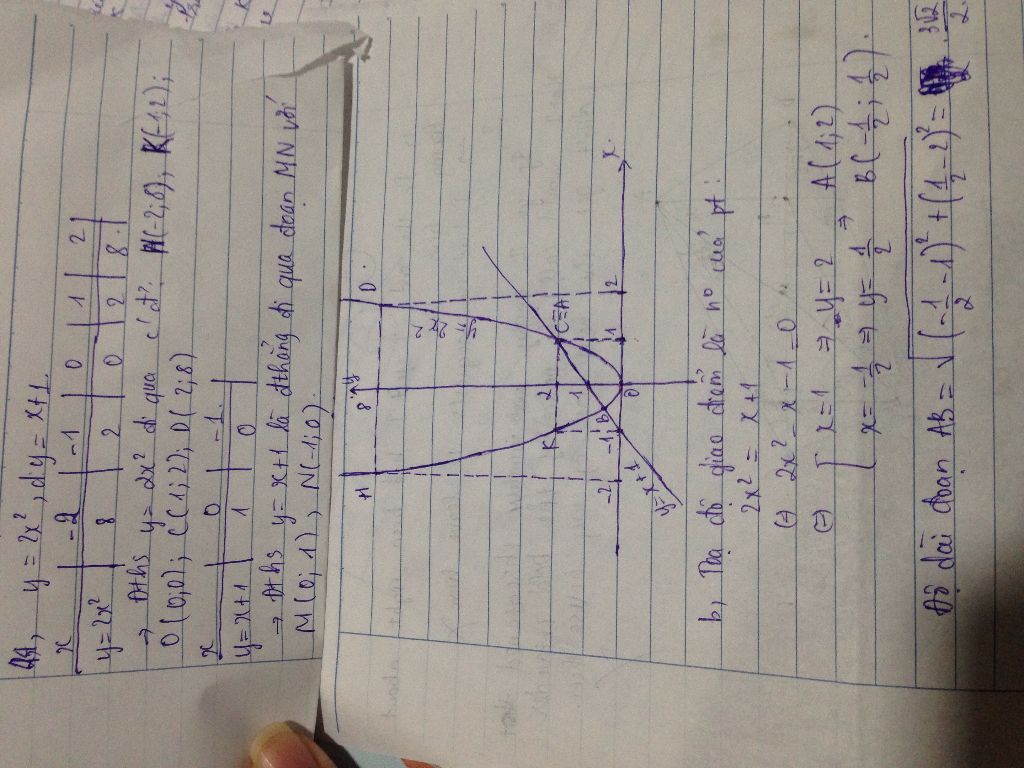 a, y = 2x², d y = x+1.
x | -2 | -1 | 0 | 1 | 2 |
y=2x² | 8 | 2 | 0 | 2 | 8 |
→ Đths y = 2x² đi qua các đ': H(-2;8); K(-1;2);
O(0;0); C(1;2); D(2;8)
x | 0 | -1
y=x+1 | 1 | 0
→ Đths y = x+1 là đthẳng đi qua đoạn MN với
M(0;1), N(-1;0).
H 8 y D
y=2x²
K 2 C≡A
1
B
-2 -1 O 1 2 x
y=x+1
b, Toạ độ giao điểm là n° của pt:
2x² = x+1
(=) 2x² - x - 1 = 0
(=) [ x = 1 => y = 2 A(1;2)
x = -1/2 => y = 1/2 → B(-1/2; 1/2).
Độ dài đoạn AB = √((-1/2 - 1)² + (1/2 - 2)²) = 3√2/2.